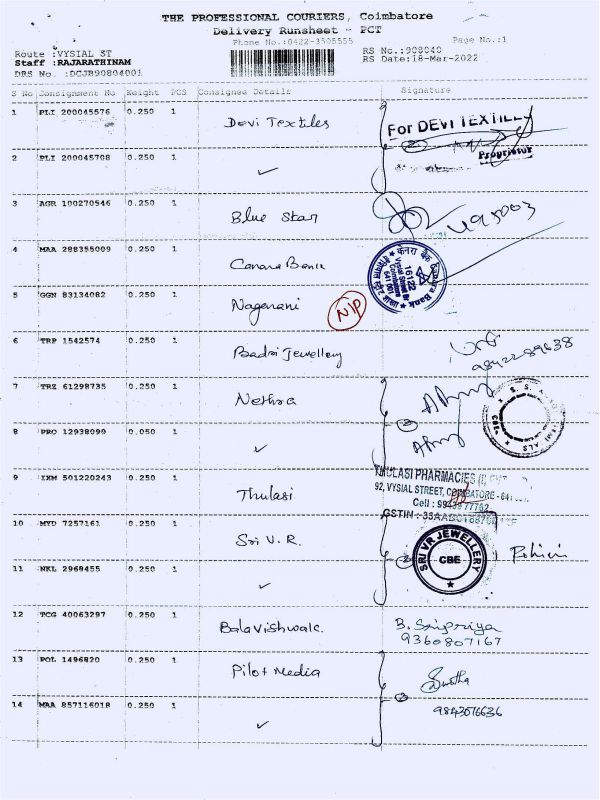 THE PROFESSIONAL COURIERS, Coimbatore
Delivery Runsheet - PCT
Phone No.:0422-3505555
Page No.:1
Route :VYSIAL ST
Staff :RAJARATHINAM
DRS No. :DCJB90804001
RS No.:908040
RS Date:18-Mar-2022
S No Consignment No Weight PCS Consignee Details Signature
1 PLI 200045576 0.250 1 Devi Textiles
For DEVI TEXTILE
Proprietor
2 PLI 200045708 0.250 1 ✓
3 AGR 100270546 0.250 1 Blue Star
4 MAA 288355009 0.250 1 Canara Bank
केनरा बैंक Canara Bank
16122
Vysial Street Br
Coimbatore
641 001
5 GGN 83134082 0.250 1 Nagerani N/P
6 TRP 1542574 0.250 1 Badri Jewellery
9842289638
7 TRZ 61298735 0.250 1 Nethra
8 PRO 12938099 0.050 1 ✓
9 IXM 501220243 0.250 1 Thulasi
THULASI PHARMACIES
92, VYSIAL STREET, COIMBATORE - 641
Cell :
GSTIN :
10 MYD 7257161 0.250 1 Sri V.R.
SRI VR JEWELLERY
CBE
Rohini
11 NKL 2968455 0.250 1 ✓
12 TCG 40063297 0.250 1 Balavishwalc.
B. Sripriya
9360807167
13 POL 1496820 0.250 1 Pilot Media
14 MAA 857116018 0.250 1 ✓
9843076636